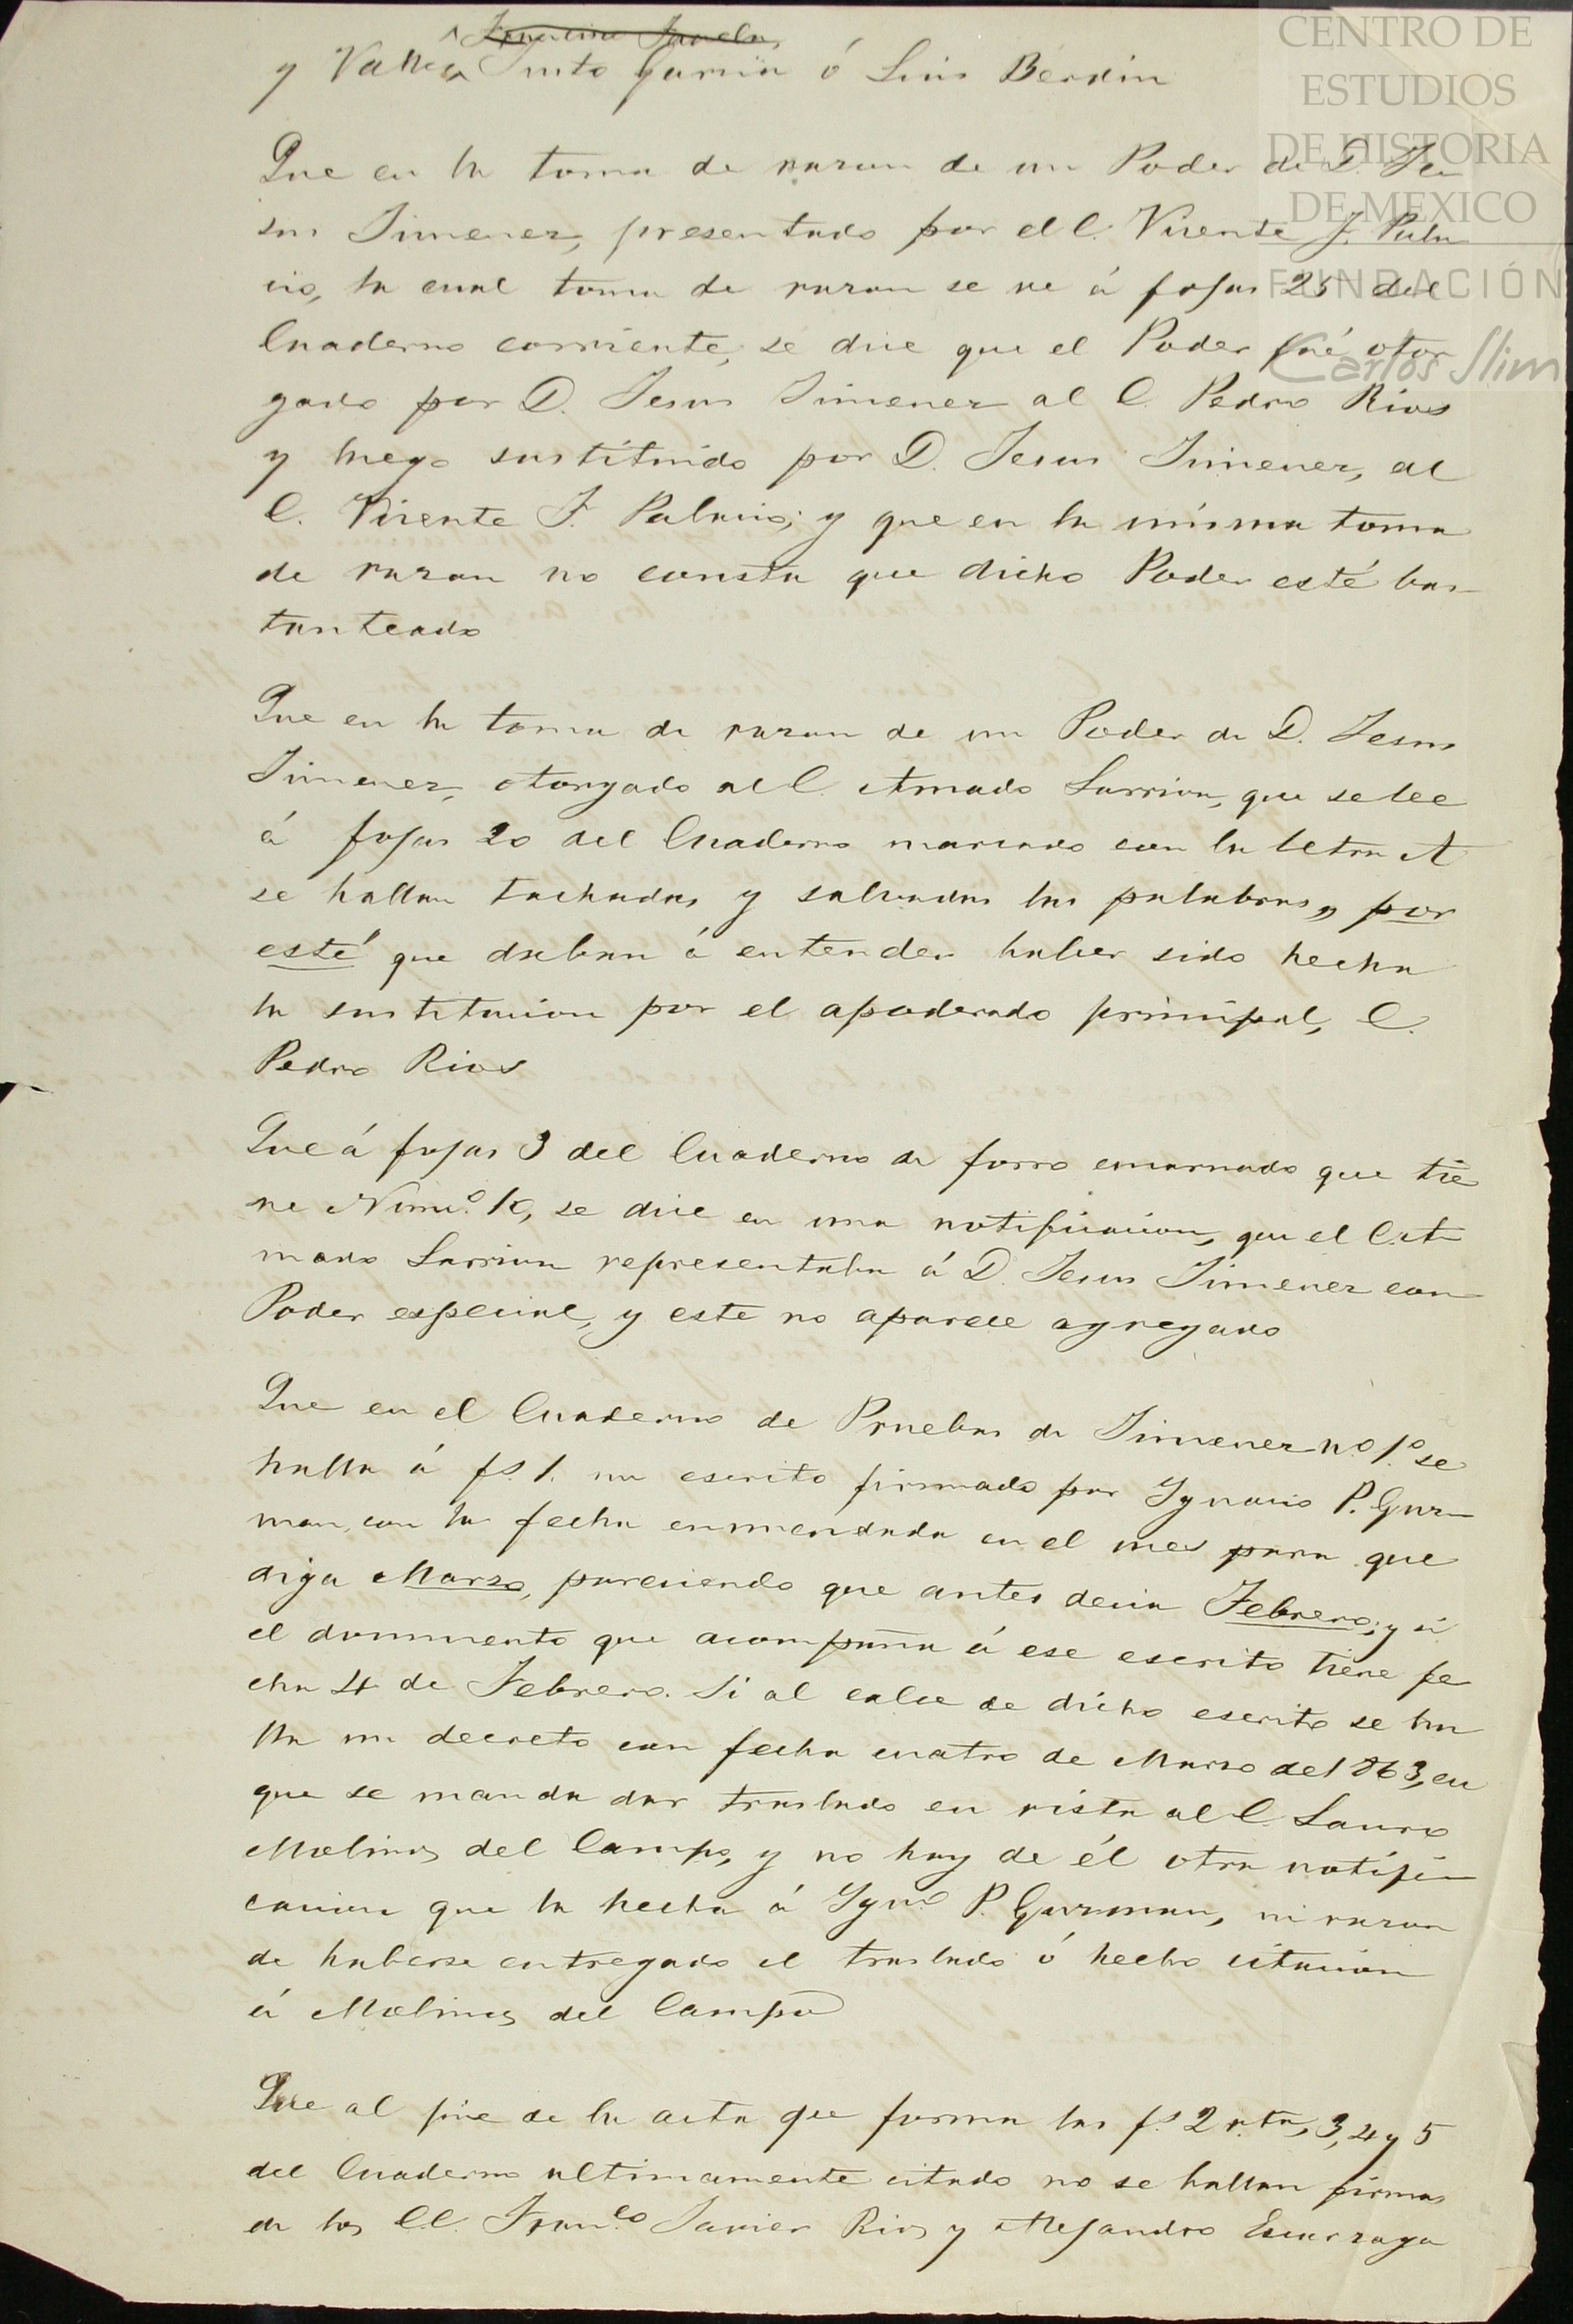 CENTRO DE
ESTUDIOS
DE HISTORIA
DE MEXICO
FUNDACIÓN
Carlos Slim
y Valleja Justo Garcia ó Luis Berdin
Que en la toma de razon de un Poder de D. Je
sus Jimenez, presentado por el C. Vicente F. Pala
cio, la cual toma de razon se ve á fojas 25 del
Cuaderno corriente, se dice que el Poder fué otor
gado por D. Jesus Jimenez al C. Pedro Rios
y luego sustituido por D. Jesus Jimenez, al
C. Vicente F. Palacio; y que en la misma toma
de razon no consta que dicho Poder esté bas
tanteado
Que en la toma de razon de un Poder de D. Jesus
Jimenez, otorgado al C. Amado Larriva, que se lee
á fojas 20 del Cuaderno marcado con la letra A
se hallan tachadas y salvadas las palabras, "por
esté" que daban á entender haber sido hecha
la sustitucion por el apoderado principal, C.
Pedro Rios
Que á fojas 3 del Cuaderno de forro encarnado que tie
ne Numo. 10, se dice en una notificacion, que el C. A
mado Larriva representaba á D. Jesus Jimenez con
Poder especial, y este no aparece agregado
Que en el Cuaderno de Pruebas de Jimenez no. 1o. se
halla á fs. 1. un escrito firmado por Ygnacio P. Guz
man, con la fecha enmendada en el mes para que
diga Marzo, pareciendo que antes decia Febrero; y si
el documento que acompaña á ese escrito tiene fe
cha 4 de Febrero. Si al calce de dicho escrito se ha
lla un decreto con fecha cuatro de Marzo de 1863, en
que se manda dar traslado en vista al C. Lauro
Molinos del Campo, y no hay de él otra notifi
cacion que la hecha á Ygno. P. Guzman, ni razon
de haberse entregado el traslado ó hecho citacion
á Molinos del Campo
Que al pié de la acta que forma las fs. 2 vta, 3, 4 y 5
del Cuaderno ultimamente citado no se hallan firmas
de los C.C. Franco. Javier Rios y Alejandro Escarzaga